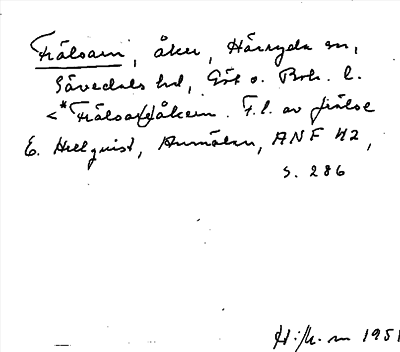 Frälsarn, åker, Härryda sn,
Sävedals hd, Göt o. Boh. l.
< *Frälsar(e)åkern. F.l. av frälse
E. Hellquist, Anmälan, ANF 42,
s. 286
1951